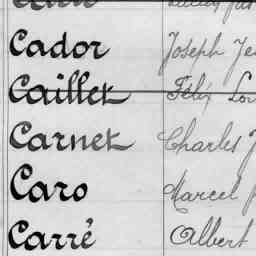 Cador Joseph
Caillet Félix
Carnet Charles
Caro Marcel
Carré Albert